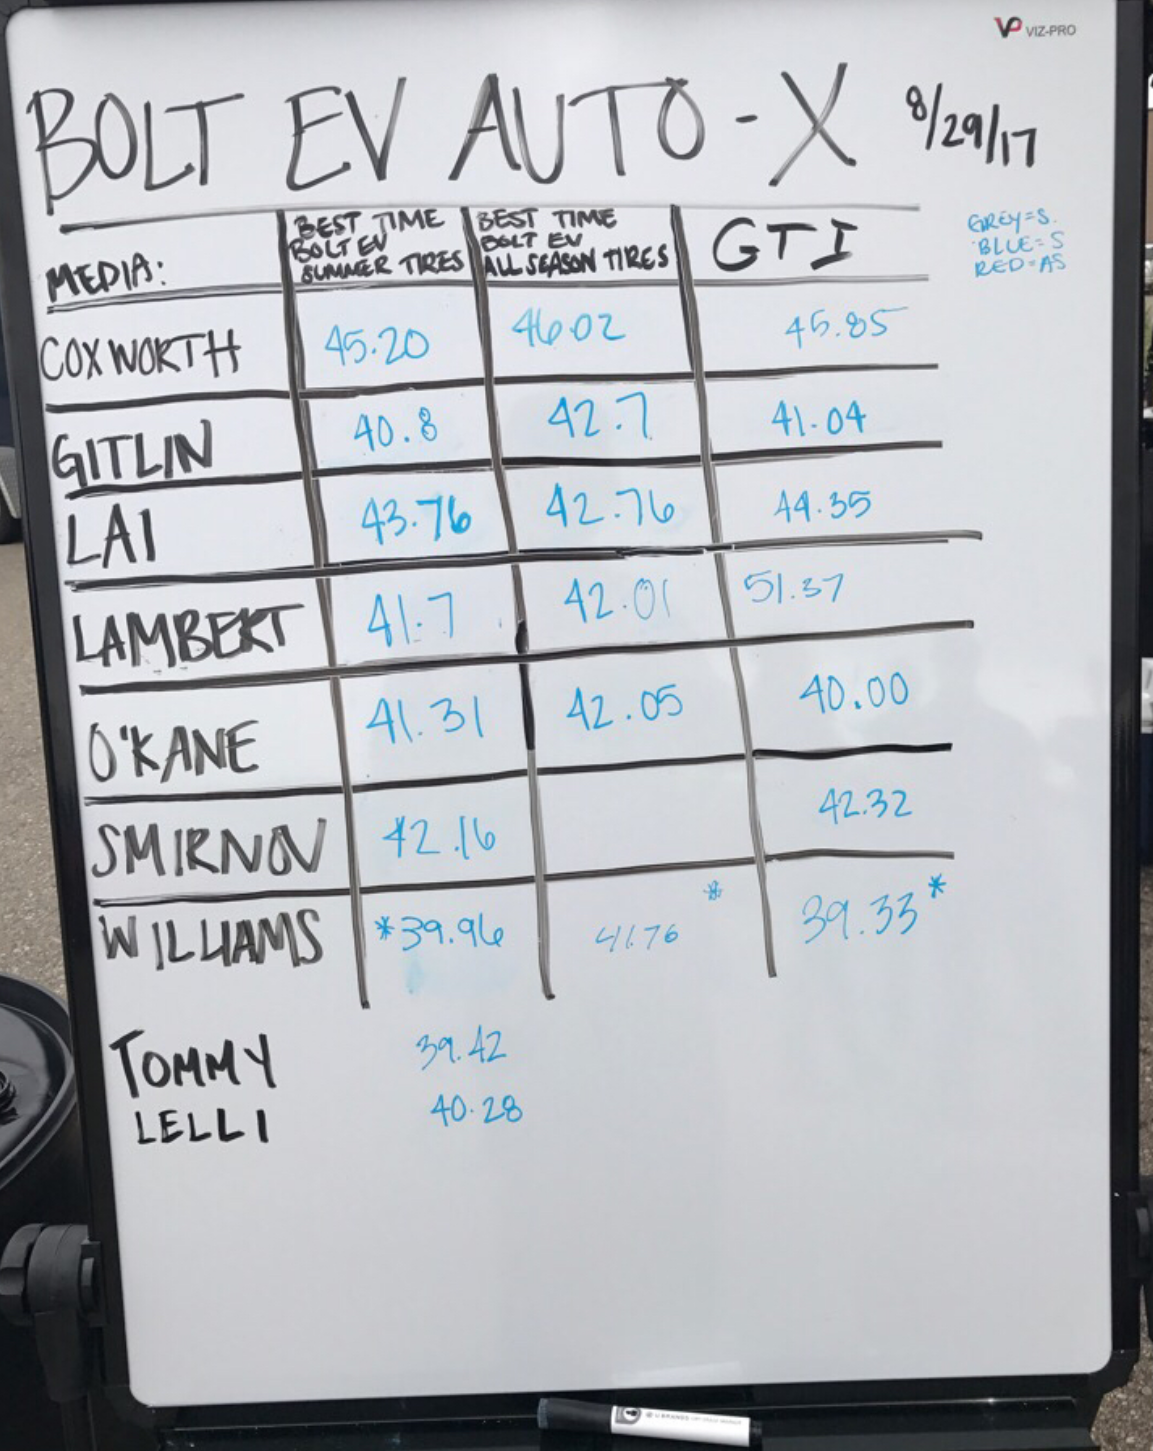 VIZ-PRO
BOLT EV AUTO-X 8/29/17
MEDIA:
BEST TIME
BOLT EV
SUMMER TIRES
BEST TIME
BOLT EV
ALL SEASON TIRES
GTI
GREY=S.
BLUE=S
RED=AS
COXWORTH 45.20 46.02 45.85
GITLIN 40.8 42.7 41.04
LAI 43.76 42.76 44.35
LAMBERT 41.7 42.01 51.37
O'KANE 41.31 42.05 40.00
SMIRNOV 42.16 42.32
WILLIAMS *39.96 41.76 * 39.33*
TOMMY 39.42
LELLI 40.28
U BRANDS